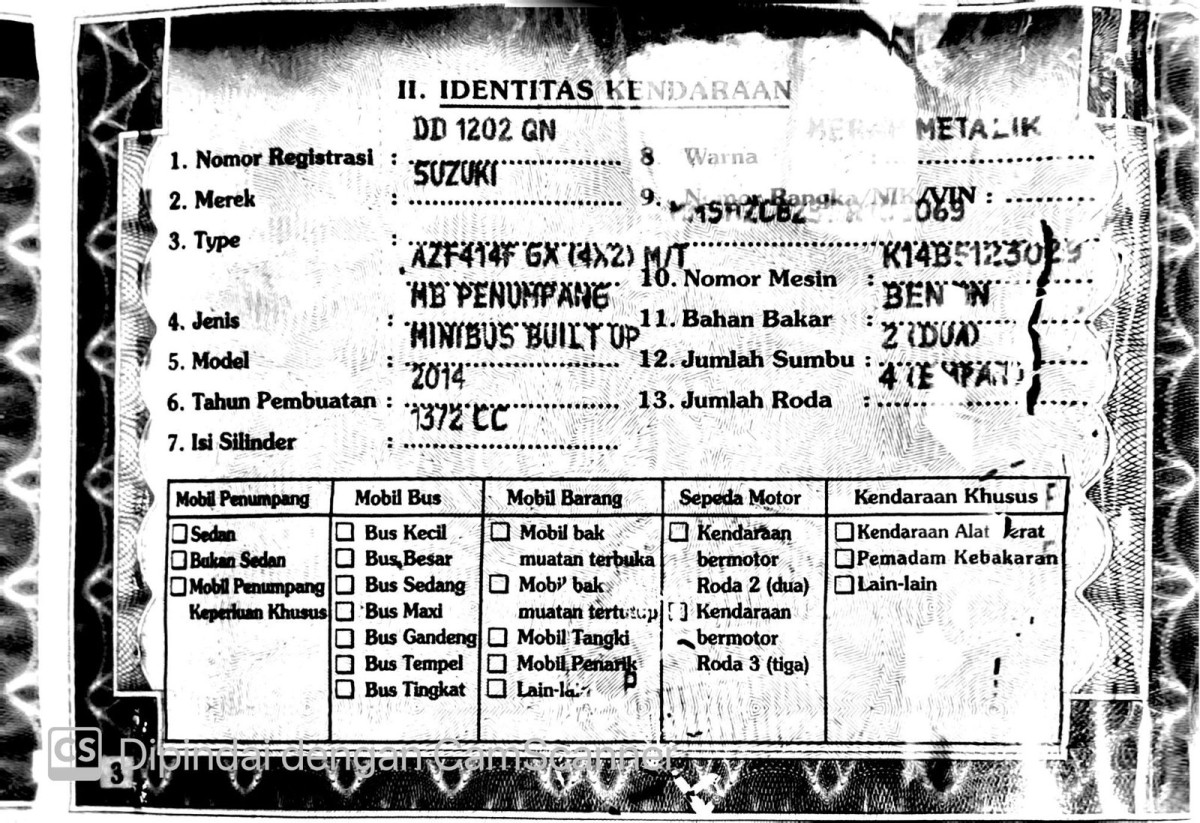 II. IDENTITAS KENDARAAN
DD 1202 QN
1. Nomor Registrasi :
SUZUKI
2. Merek :
3. Type :
AZF414F GX (4X2) M/T
MB PENUMPANG
4. Jenis :
MINIBUS BUILT UP
5. Model :
2014
6. Tahun Pembuatan :
1372 CC
7. Isi Silinder :
METALIK
8 Warna :
9. Nomor Rangka/NIK/VIN :
10. Nomor Mesin :
11. Bahan Bakar :
2 (DUA)
12. Jumlah Sumbu :
4
13. Jumlah Roda :
Mobil Penumpang
Sedan
Bukan Sedan
Mobil Penumpang
Keperluan Khusus
Mobil Bus
Bus Kecil
Bus Besar
Bus Sedang
Bus Maxi
Bus Gandeng
Bus Tempel
Bus Tingkat
Mobil Barang
Mobil bak
muatan terbuka
Mobil bak
muatan tertutup
Mobil Tangki
Mobil Penarik
Lain-lain
Sepeda Motor
Kendaraan
bermotor
Roda 2 (dua)
Kendaraan
bermotor
Roda 3 (tiga)
Kendaraan Khusus
Kendaraan Alat Berat
Pemadam Kebakaran
Lain-lain
CS Dipindai dengan CamScanner
3